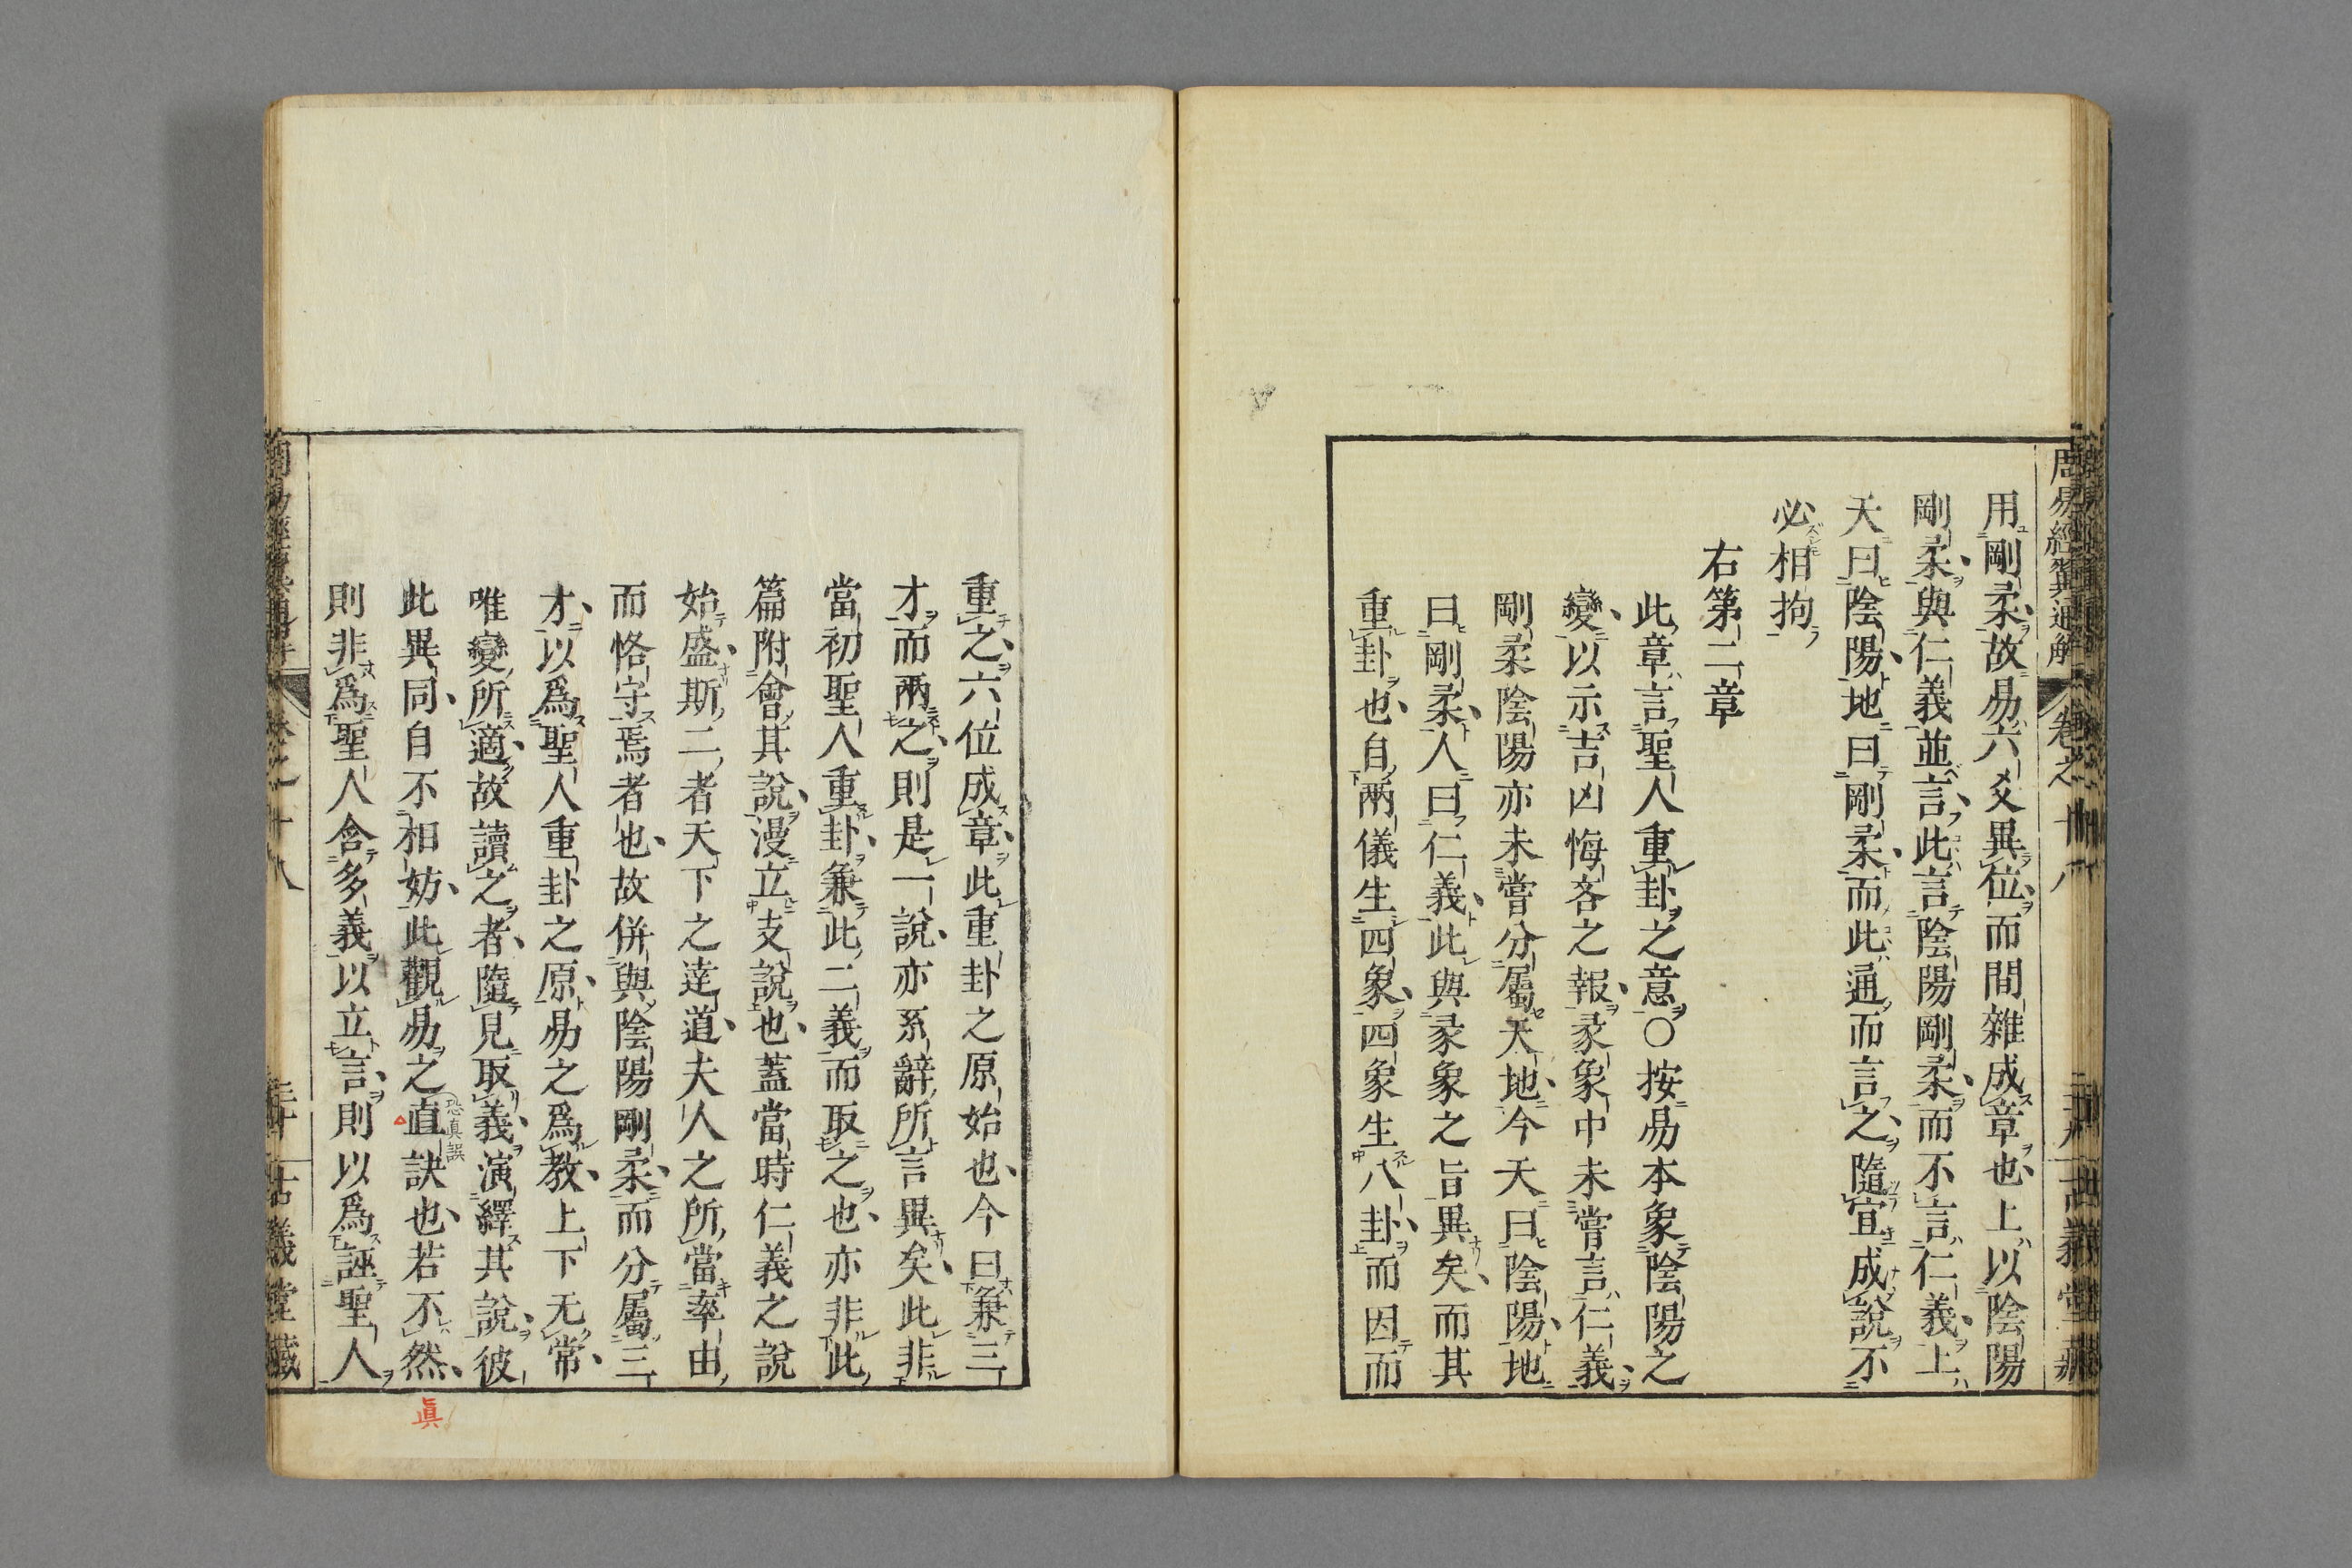 周易經翼通解
卷之十八
古義堂藏
用剛柔故易六爻異位而間雜成章也上以陰陽
剛柔與仁義並言此言陰陽剛柔而不言仁義上
天曰陰陽地曰剛柔而此通而言之隨宜成說不
必相拘
右第二章
此章言聖人重卦之意〇按易本象陰陽之
變以示吉凶悔吝之報彖象中未嘗言仁義
剛柔陰陽亦未嘗分屬天地今天曰陰陽地
曰剛柔人曰仁義此與彖象之旨異矣而其
重卦也自兩儀生四象四象生八卦而因而
重之六位成章此重卦之原始也今曰兼三
才而兩之則是一說亦系辭所言異矣此非
當初聖人重卦兼此二義而取之也亦非此
篇附會其說漫立支說也蓋當時仁義之說
始盛斯二者天下之達道夫人之所當率由
而恪守焉者也故併與陰陽剛柔而分屬三
才以爲聖人重卦之原易之爲教上下无常
唯變所適故讀之者隨見取義演繹其說彼
此異同自不相妨此觀易之直訣也若不然
恐眞誤
眞
則非爲聖人含多義以立言則以爲誣聖人
周易經翼通解
卷之十八
三十
古義堂藏